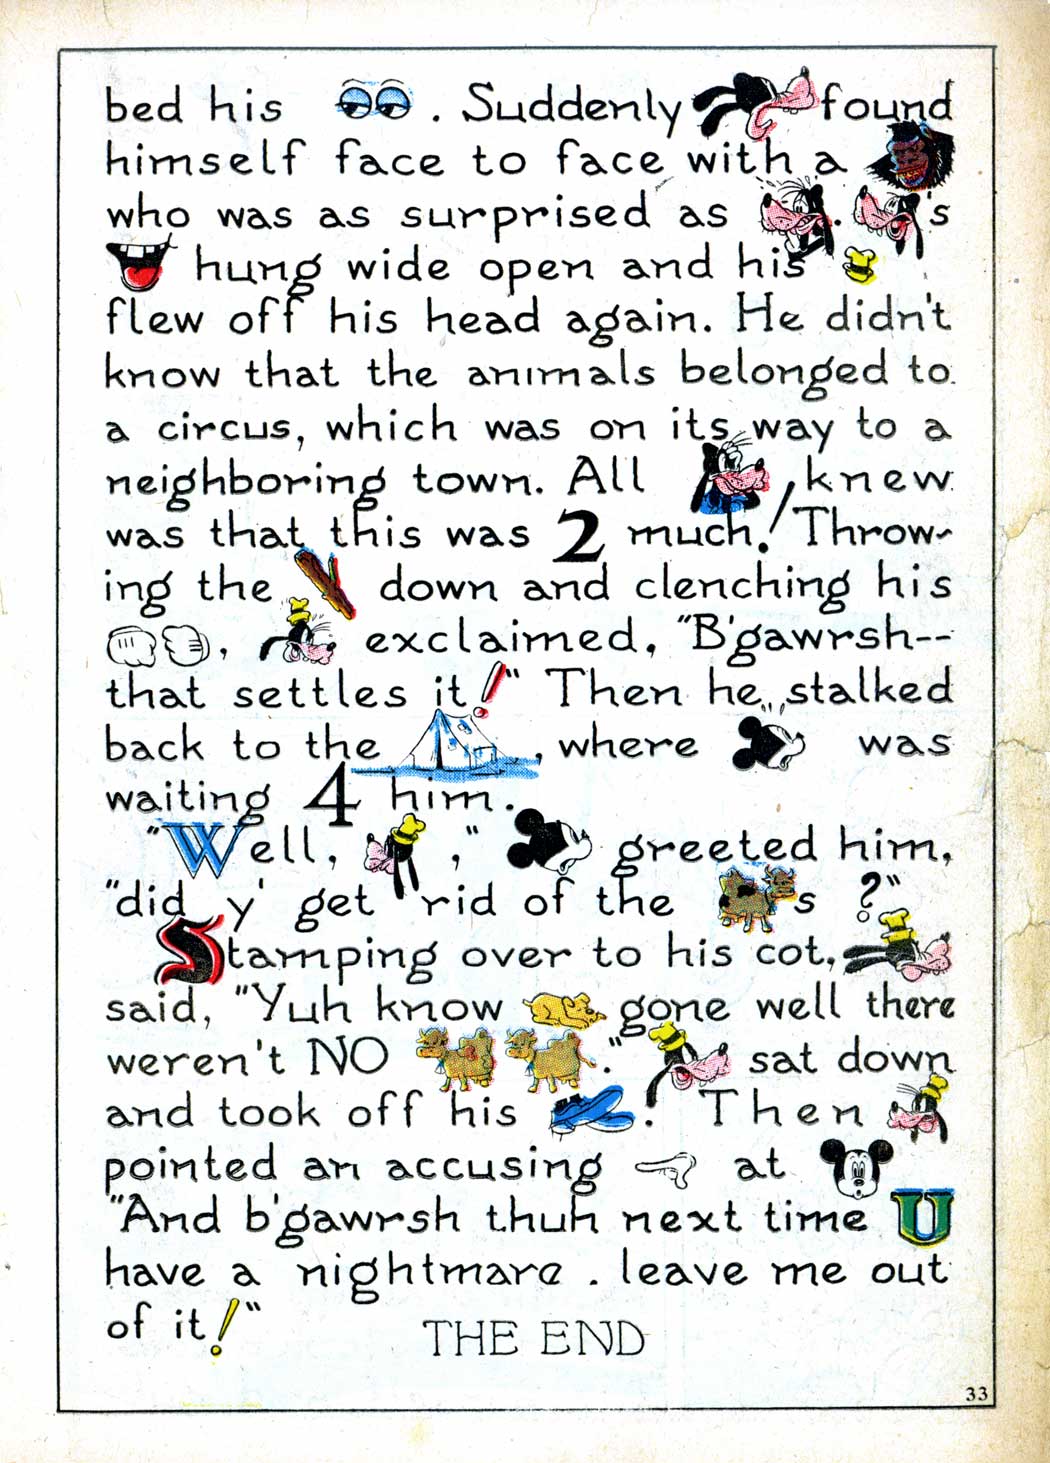 bed his . Suddenly found
himself face to face with a
who was as surprised as . 's
hung wide open and his
flew off his head again. He didn't
know that the animals belonged to
a circus, which was on its way to a
neighboring town. All knew
was that this was 2 much! Throw-
ing the down and clenching his
, exclaimed, "B'gawrsh--
that settles it!" Then he stalked
back to the , where was
waiting 4 him.
"Well, ," greeted him,
"did y' get rid of the s ?"
Stamping over to his cot,
said, "Yuh know gone well there
weren't NO ." sat down
and took off his . Then
pointed an accusing at
"And b'gawrsh thuh next time U
have a nightmare . leave me out
of it!"
THE END
33